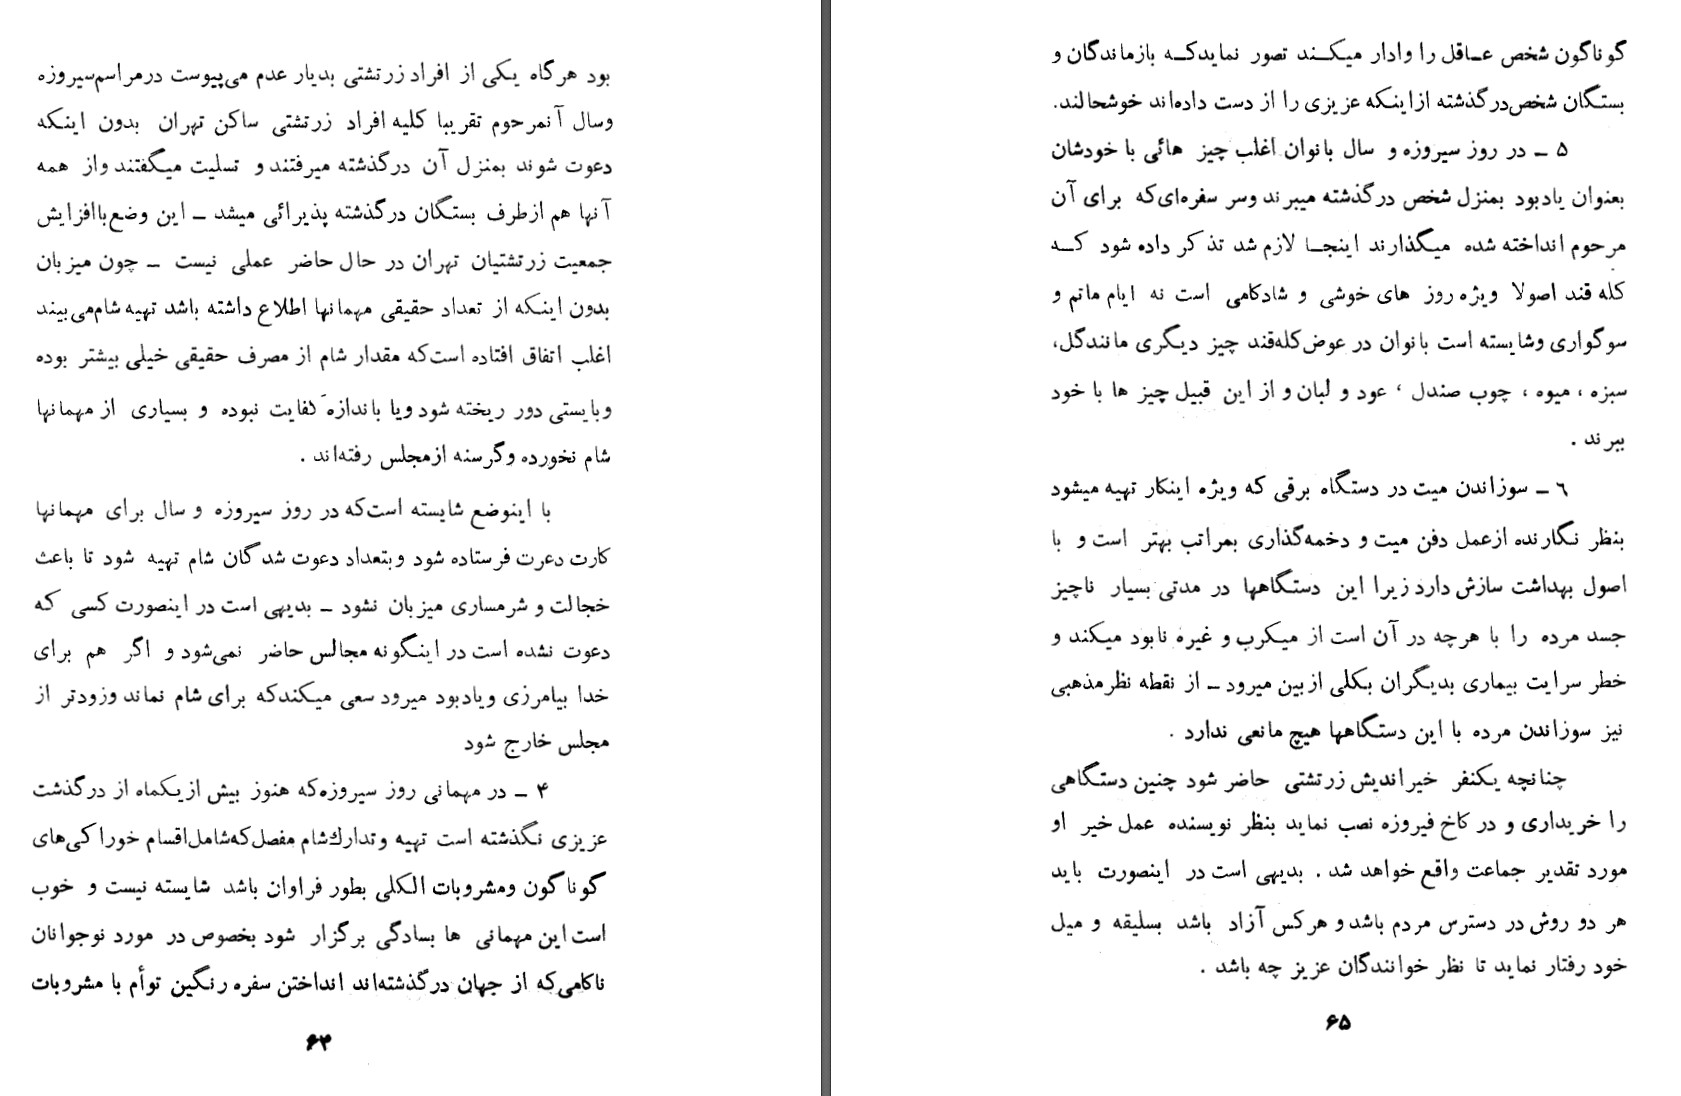 بود هرگاه یکی از افراد زرتشتی بدیار عدم می‌پیوست درمراسم‌سیروزه
وسال آنمرحوم تقریبا کلیه افراد زرتشتی ساکن تهران بدون اینکه
دعوت شوند بمنزل آن درگذشته میرفتند و تسلیت میگفتند واز همه
آنها هم ازطرف بستگان درگذشته پذیرائی میشد ــ این وضع‌باافزایش
جمعیت زرتشتیان تهران در حال حاضر عملی نیست ــ چون میزبان
بدون اینکه از تعداد حقیقی مهمانها اطلاع داشته باشد تهیه شام‌می‌بیند
اغلب اتفاق افتاده است‌که مقدار شام از مصرف حقیقی خیلی بیشتر بوده
وبایستی دور ریخته شود ویا باندازه کفایت نبوده و بسیاری از مهمانها
شام نخورده وگرسنه ازمجلس رفته‌اند .
با اینوضع شایسته است‌که در روز سیروزه و سال برای مهمانها
کارت دعرت فرستاده شود وبتعداد دعوت شدگان شام تهیه شود تا باعث
خجالت و شرمساری میزبان نشود ــ بدیهی است در اینصورت کسی که
دعوت نشده است در اینگونه مجالس حاضر نمی‌شود و اگر هم برای
خدا بیامرزی ویادبود میرود سعی میکندکه برای شام نماند وزودتر از
مجلس خارج شود
۴ ــ در مهمانی روز سیروزه‌که هنوز بیش ازیکماه از درگذشت
عزیزی نگذشته است تهیه وتدارك‌شام مفصل‌که‌شامل‌اقسام خوراکی‌های
گوناگون ومشروبات الکلی بطور فراوان باشد شایسته نیست و خوب
است این مهمانی ها بسادگی برگزار شود بخصوص در مورد نوجوانان
ناکامی‌که از جهان درگذشته‌اند انداختن سفره رنگین توأم با مشروبات
۶۴
گوناگون شخص عـاقل را وادار میکـند تصور نمایدکـه بازماندگان و
بستگان شخص‌درگذشته ازاینکه عزیزی را از دست داده‌اند خوشحالند.
۵ ــ در روز سیروزه و سال بانوان اغلب چیز هائی با خودشان
بعنوان یادبود بمنزل شخص درگذشته میبرند وسر سفره‌ای‌که برای آن
مرحوم انداخته شده میگذارند اینجـا لازم شد تذکر داده شود کـه
کله قند اصولا ویژه روز های خوشی و شادکامی است نه ایام ماتم و
سوگواری وشایسته است بانوان در عوض‌کله‌قند چیز دیگری مانندگل،
سبزه ، میوه ، چوب صندل ، عود و لبان و از این قبیل چیز ها با خود
ببرند .
٦ ــ سوزاندن میت در دستگاه برقی که ویژه اینکار تهیه میشود
بنظر نگارنده ازعمل دفن میت و دخمه‌گذاری بمراتب بهتر است و با
اصول بهداشت سازش دارد زیرا این دستگاهها در مدتی بسیار ناچیز
جسد مرده را با هرچه در آن است از میکرب و غیره نابود میکند و
خطر سرایت بیماری بدیگران بکلی ازبین میرود ــ از نقطه نظرمذهبی
نیز سوزاندن مرده با این دستگاهها هیچ مانعی ندارد .
چنانچه یکنفر خیراندیش زرتشتی حاضر شود چنین دستگاهی
را خریداری و در کاخ فیروزه نصب نماید بنظر نویسنده عمل خیر او
مورد تقدیر جماعت واقع خواهد شد . بدیهی است در اینصورت باید
هر دو روش در دسترس مردم باشد و هرکس آزاد باشد بسلیقه و میل
خود رفتار نماید تا نظر خوانندگان عزیز چه باشد .
۶۵